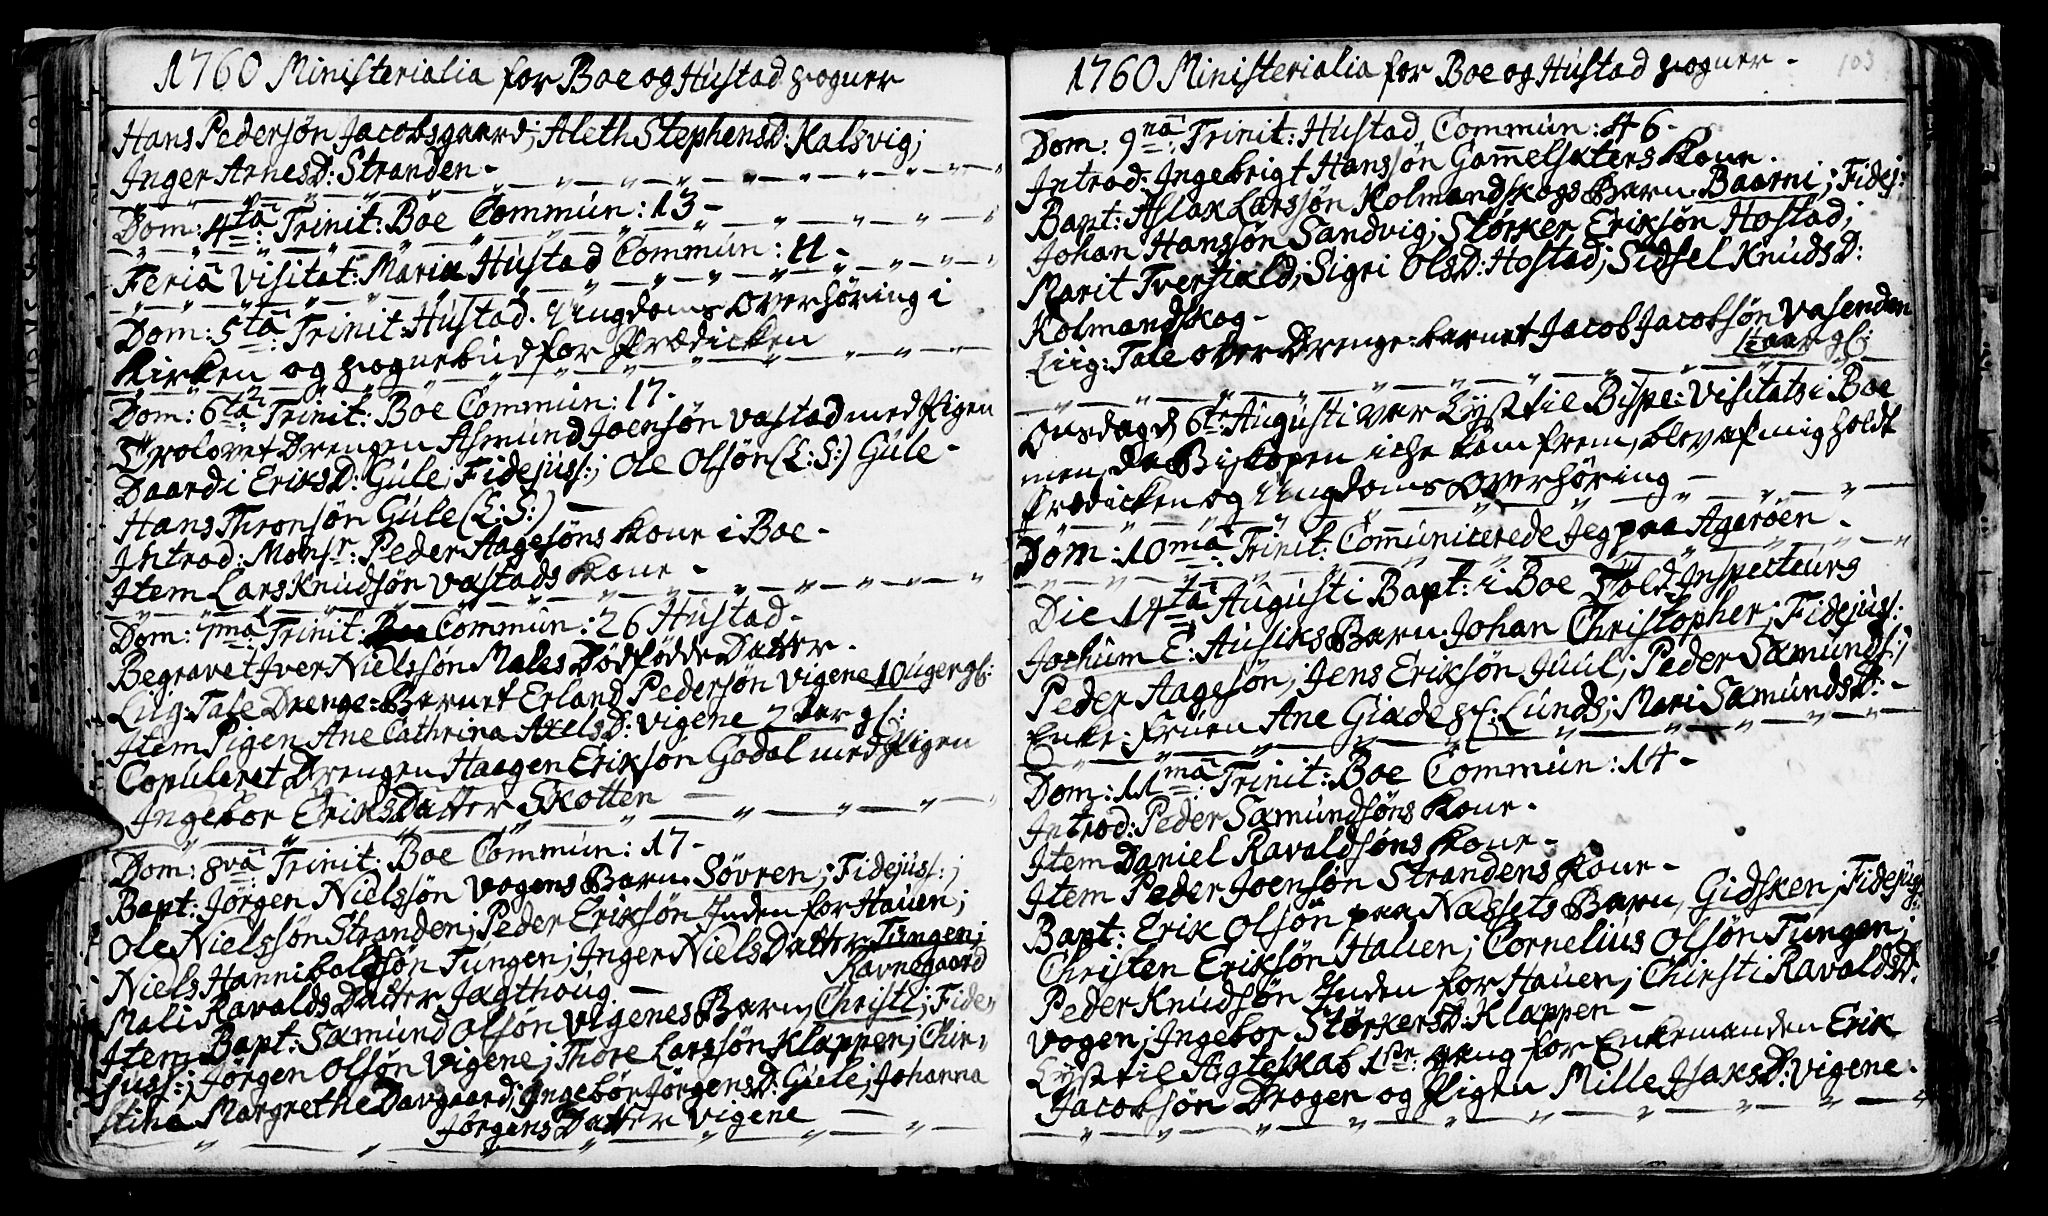 1760 Ministerialia for Boe og Hústad sogner
Hans Pedersön Jacobsgaard; Aleth StephensD: Kalsvig;
Inger ArnesD: Stranden -
Dom: 4ta Trinit: Boe Commún: 13 -
Feria Visitat: Mariæ Hústad Commún: 11 -
Dom: 5ta Trinit: Hústad. Ungdoms Overhöring i
Kirken og sognebud for Prædicken
Dom: 6ta Trinit: Boe Commún: 17.
Trolovet Drengen Asmúnd Joensön Vastad med Pigen
Baardi EriksD: Gúle; Fidejúss:; Ole Olsön (L:S:) Gúle -
Hans Thronsön Gúle (L:S:) -
Introd: Monsr: Peder Aagesöns Kone i Boe -
Item Lars Knúdsön Vastads Kone -
Dom: 7ma Trinit: Commún: 26 Hústad -
Begravet Iver Nielssön Males Dödfödde Datter -
Liig: Tale Drenge-Barnet Erland Pedersön Vigene 10 úger gl:
Item Pigen Ane Cathrina AxelsD: Vigene 2 aar gl:
Copuleret Drengen Haagen Eriksön Godal med Pigen
Ingebor EriksDatter Skotten -
Dom: 8va Trinit: Boe Commún: 17 -
Bapt: Jörgen Nielssön Vogens Barn. Sövren; Fidejúss:;
Ole Nielssön Stranden; Peder Eriksön Inden for Haúen;
Niels Hannibalssön Túngen; Inger NielsDatter Túngen;
Mali RavaldsDatter Jagthoúg. - Ravnsgaard
Item Bapt: Sæmúnd Olsön Vigenes Barn, Christi; Fide-
júss:; Jörgen Olsön Vigene; Thore Larssön Klappen; Chir-
stina Margrethe Davgaard; Ingebor JörgensD: Gúle; Johanna
JörgensDatter Vigene -
1760 Ministerialia for Boe og Hústad sogner - 103
Dom: 9na Trinit: Hústad Commún: 46 -
Introd: Ingebrigt Hanssön Gammelsæters Kone.
Bapt: Aslak Larssön Kolmandskogs Barn. Baarni; Fidej:
Johan Hanssön Sandvig; Störker Eriksön Hostad;
Marit Tverfiæld; Sigri OlsD: Hostad; Sidsel KnúdsD:
Kolmandskog -
Liig: Tale over Drenge-barnet Jacob Jacobsön Vasenden
½ aar gl:
Onsdag d 6te Augústi var Lyst til Bispe: Visitats i Boe
men da Biskopen iche kom frem, blev af mig holdt
Prædicken og Ungdoms Overhöring -
Dom: 10ma Trinit: Commúnicerede Jeg paa Ageröen -
Die 14ta Augústi Bapt: i Boe Told Inspecteúrs
Jochúm E: Húsiks Barn. Johan Christopher; Fidejúss:
Peder Aagesön; Jens Eriksön Júúl; Peder Sæmúnds:;
Enke: Frúen Ane Giæde sl: Lúnds; Mari SamúndsD: -
Dom: 11ma Trinit: Boe Commún: 14 -
Introd: Peder Sæmúndsöns Kone.
Item Daniel Ravaldsöns Kone -
Item Peder Joensön Strandens Kone -
Bapt: Erik Olsön paa Næssets Barn, Gidsken; Fidejúss:
Christen Eriksön Haúen; Cornelius Olsön Túngen;
Peder Knúdsön Inden for Haúen; Chirsti RavaldsD:
Vogen; Ingebor StörkersD: Klappen -
Lyst til Ægteskab 1ste gang for Enkemanden Erik
Jacobsön Drogen og Pigen Mille IsaksD: Vigene -